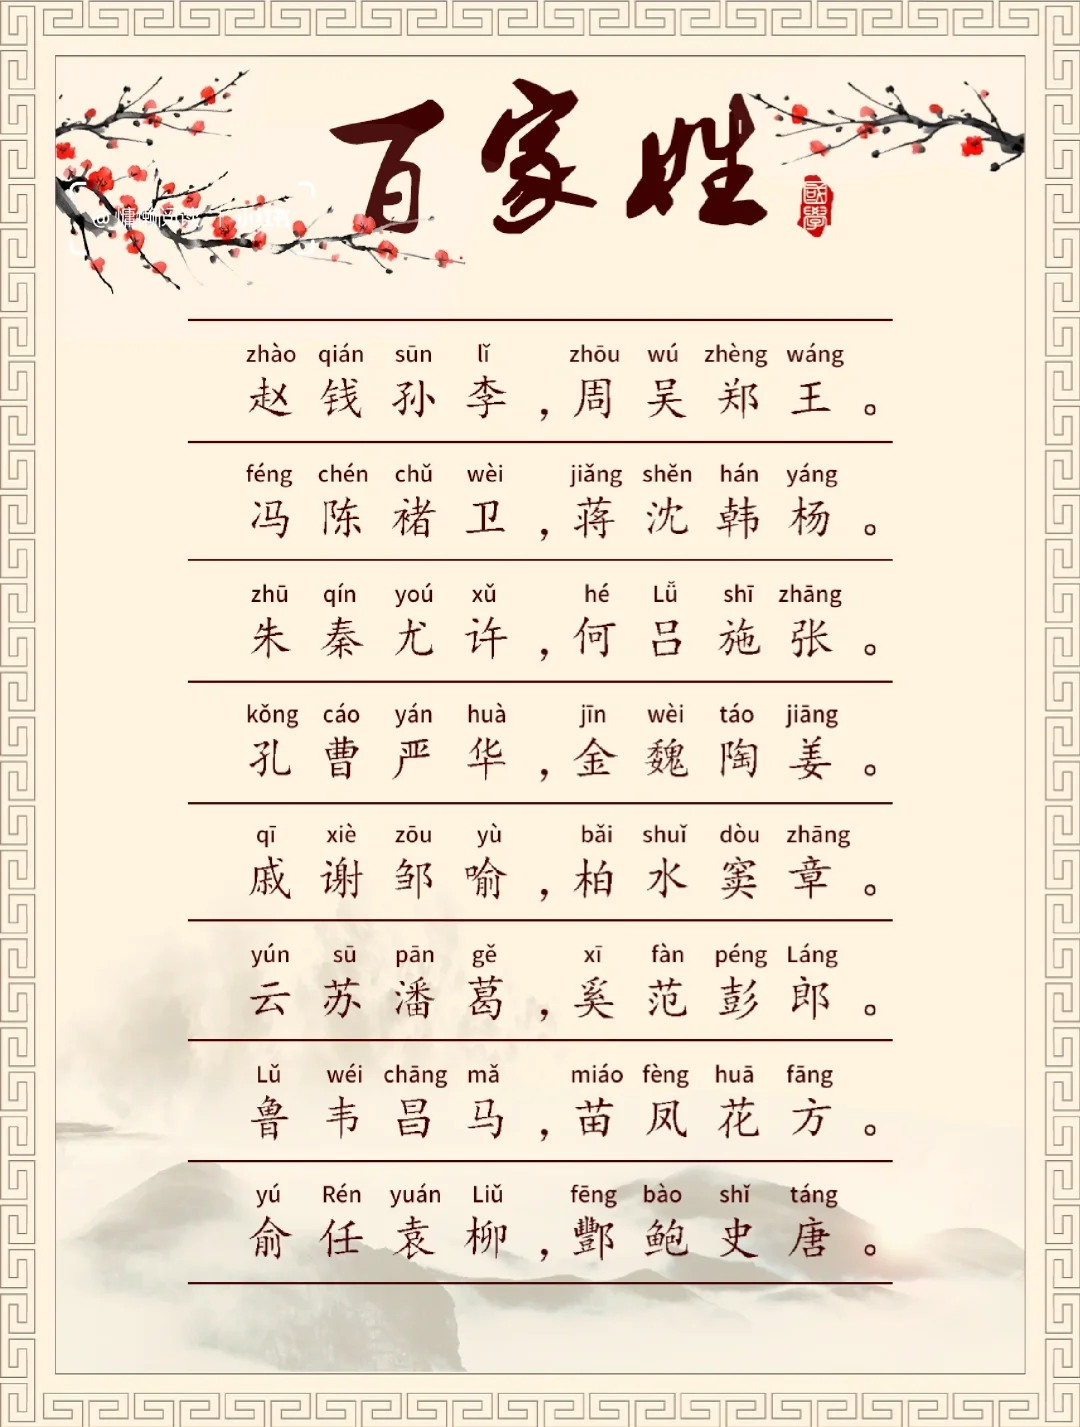 百家姓
國學
zhào qián sūn lǐ zhōu wú zhèng wáng
赵钱孙李，周吴郑王。
féng chén chǔ wèi jiǎng shěn hán yáng
冯陈褚卫，蒋沈韩杨。
zhū qín yoú xǔ hé Lǚ shī zhāng
朱秦尤许，何吕施张。
kǒng cáo yán huà jīn wèi táo jiāng
孔曹严华，金魏陶姜。
qī xiè zōu yù bǎi shuǐ dòu zhāng
戚谢邹喻，柏水窦章。
yún sū pān gě xī fàn péng Láng
云苏潘葛，奚范彭郎。
Lǔ wéi chāng mǎ miáo fèng huā fāng
鲁韦昌马，苗凤花方。
yú Rén yuán Liǔ fēng bào shǐ táng
俞任袁柳，酆鲍史唐。